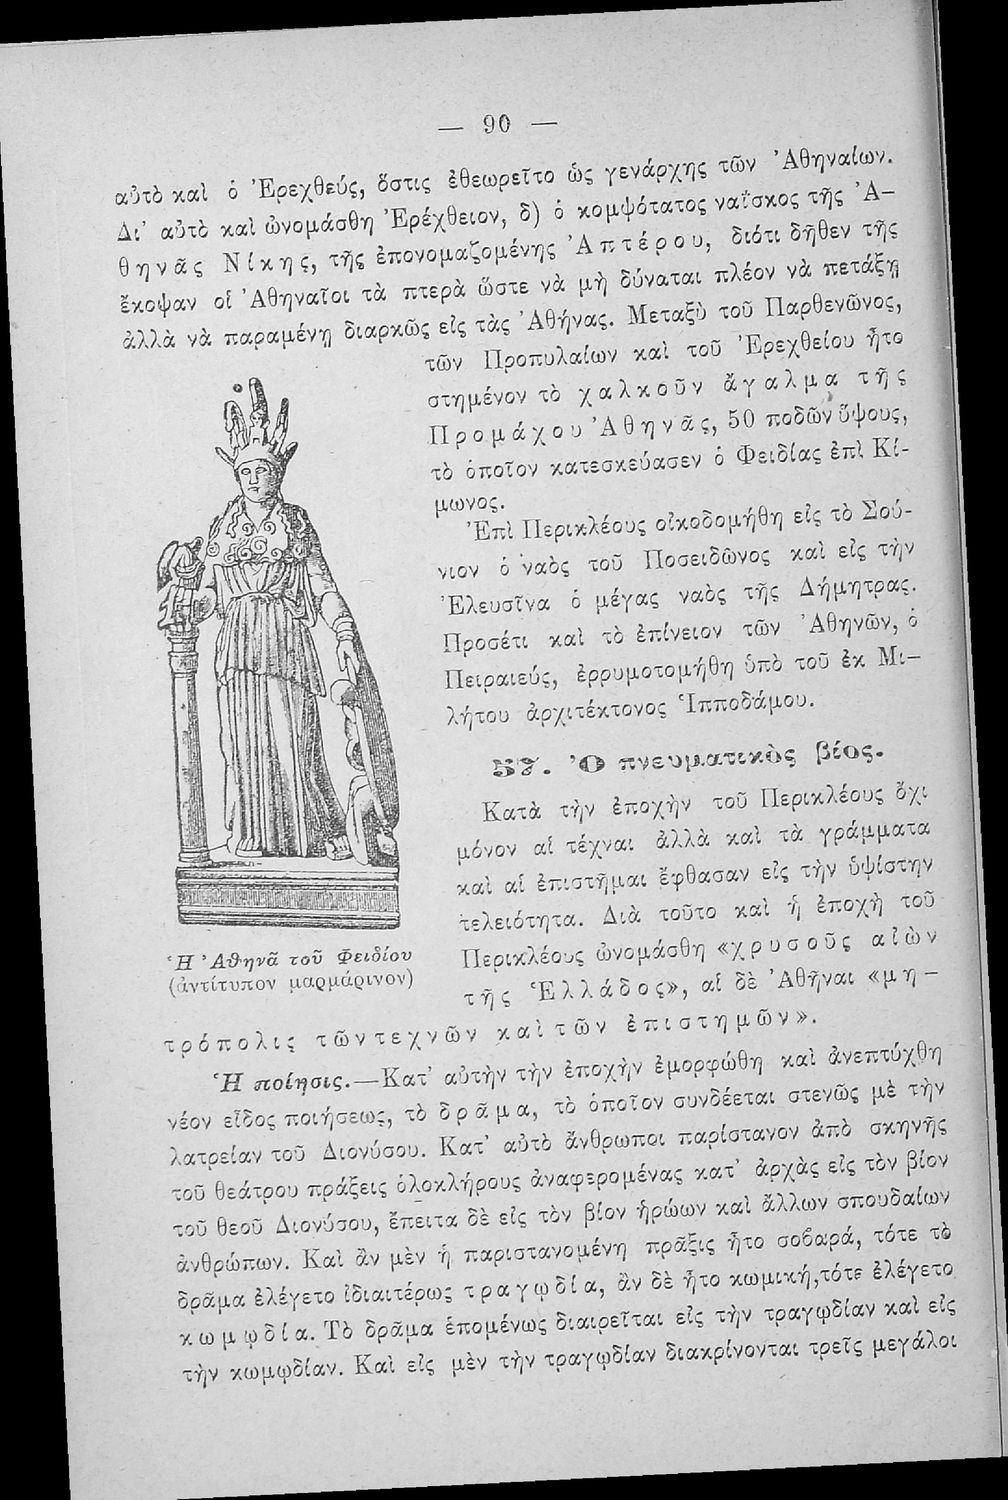 — 90 —
αὐτὸ καὶ ὁ Ἐρεχθεύς, ὅστις ἐθεωρεῖτο ὡς γενάρχης τῶν Ἀθηναίων.
Δι' αὐτὸ καὶ ὠνομάσθη Ἐρέχθειον, δ) ὁ κομψότατος ναΐσκος τῆς Ἀ-
θηνᾶς Νίκης, τῆς ἐπονομαζομένης Ἀπτέρου, διότι δῆθεν τῆς
ἔκοψαν οἱ Ἀθηναῖοι τὰ πτερὰ ὥστε νὰ μὴ δύναται πλέον νὰ πετάξῃ
ἀλλὰ νὰ παραμένῃ διαρκῶς εἰς τὰς Ἀθήνας. Μεταξὺ τοῦ Παρθενῶνος,
τῶν Προπυλαίων καὶ τοῦ Ἐρεχθείου ἦτο
στημένον τὸ χαλκοῦν ἄγαλμα τῆς
Προμάχου Ἀθηνᾶς, 50 ποδῶν ὕψους,
τὸ ὁποῖον κατεσκεύασεν ὁ Φειδίας ἐπὶ Κί-
μωνος.
Ἐπὶ Περικλέους οἰκοδομήθη εἰς τὸ Σού-
νιον ὁ ναὸς τοῦ Ποσειδῶνος καὶ εἰς τὴν
Ἐλευσῖνα ὁ μέγας ναὸς τῆς Δήμητρας.
Προσέτι καὶ τὸ ἐπίνειον τῶν Ἀθηνῶν, ὁ
Πειραιεύς, ἐρρυμοτομήθη ὑπὸ τοῦ ἐκ Μι-
λήτου ἀρχιτέκτονος Ἱπποδάμου.
57. Ὁ πνευματικὸς βίος.
Κατὰ τὴν ἐποχὴν τοῦ Περικλέους ὄχι
μόνον αἱ τέχναι ἀλλὰ καὶ τὰ γράμματα
καὶ αἱ ἐπιστῆμαι ἔφθασαν εἰς τὴν ὑψίστην
τελειότητα. Διὰ τοῦτο καὶ ἡ ἐποχὴ τοῦ
Περικλέους ὠνομάσθη «χρυσοῦς αἰὼν
τῆς Ἑλλάδος», αἱ δὲ Ἀθῆναι «μη-
τρόπολις τῶν τεχνῶν καὶ τῶν ἐπιστημῶν».
Ἡ Ἀθηνᾶ τοῦ Φειδίου
(ἀντίτυπον μαρμάρινον)
Ἡ ποίησις.—Κατ' αὐτὴν τὴν ἐποχὴν ἐμορφώθη καὶ ἀνεπτύχθη
νέον εἶδος ποιήσεως, τὸ δρᾶμα, τὸ ὁποῖον συνδέεται στενῶς μὲ τὴν
λατρείαν τοῦ Διονύσου. Κατ' αὐτὸ ἄνθρωποι παρίστανον ἀπὸ σκηνῆς
τοῦ θεάτρου πράξεις ὁλοκλήρους ἀναφερομένας κατ' ἀρχὰς εἰς τὸν βίον
τοῦ θεοῦ Διονύσου, ἔπειτα δὲ εἰς τὸν βίον ἡρώων καὶ ἄλλων σπουδαίων
ἀνθρώπων. Καὶ ἂν μὲν ἡ παριστανομένη πρᾶξις ἦτο σοβαρά, τότε τὸ
δρᾶμα ἐλέγετο ἰδιαιτέρως τραγῳδία, ἂν δὲ ἦτο κωμική, τότε ἐλέγετο
κωμῳδία. Τὸ δρᾶμα ἑπομένως διαιρεῖται εἰς τὴν τραγῳδίαν καὶ εἰς
τὴν κωμῳδίαν. Καὶ εἰς μὲν τὴν τραγῳδίαν διακρίνονται τρεῖς μεγάλοι